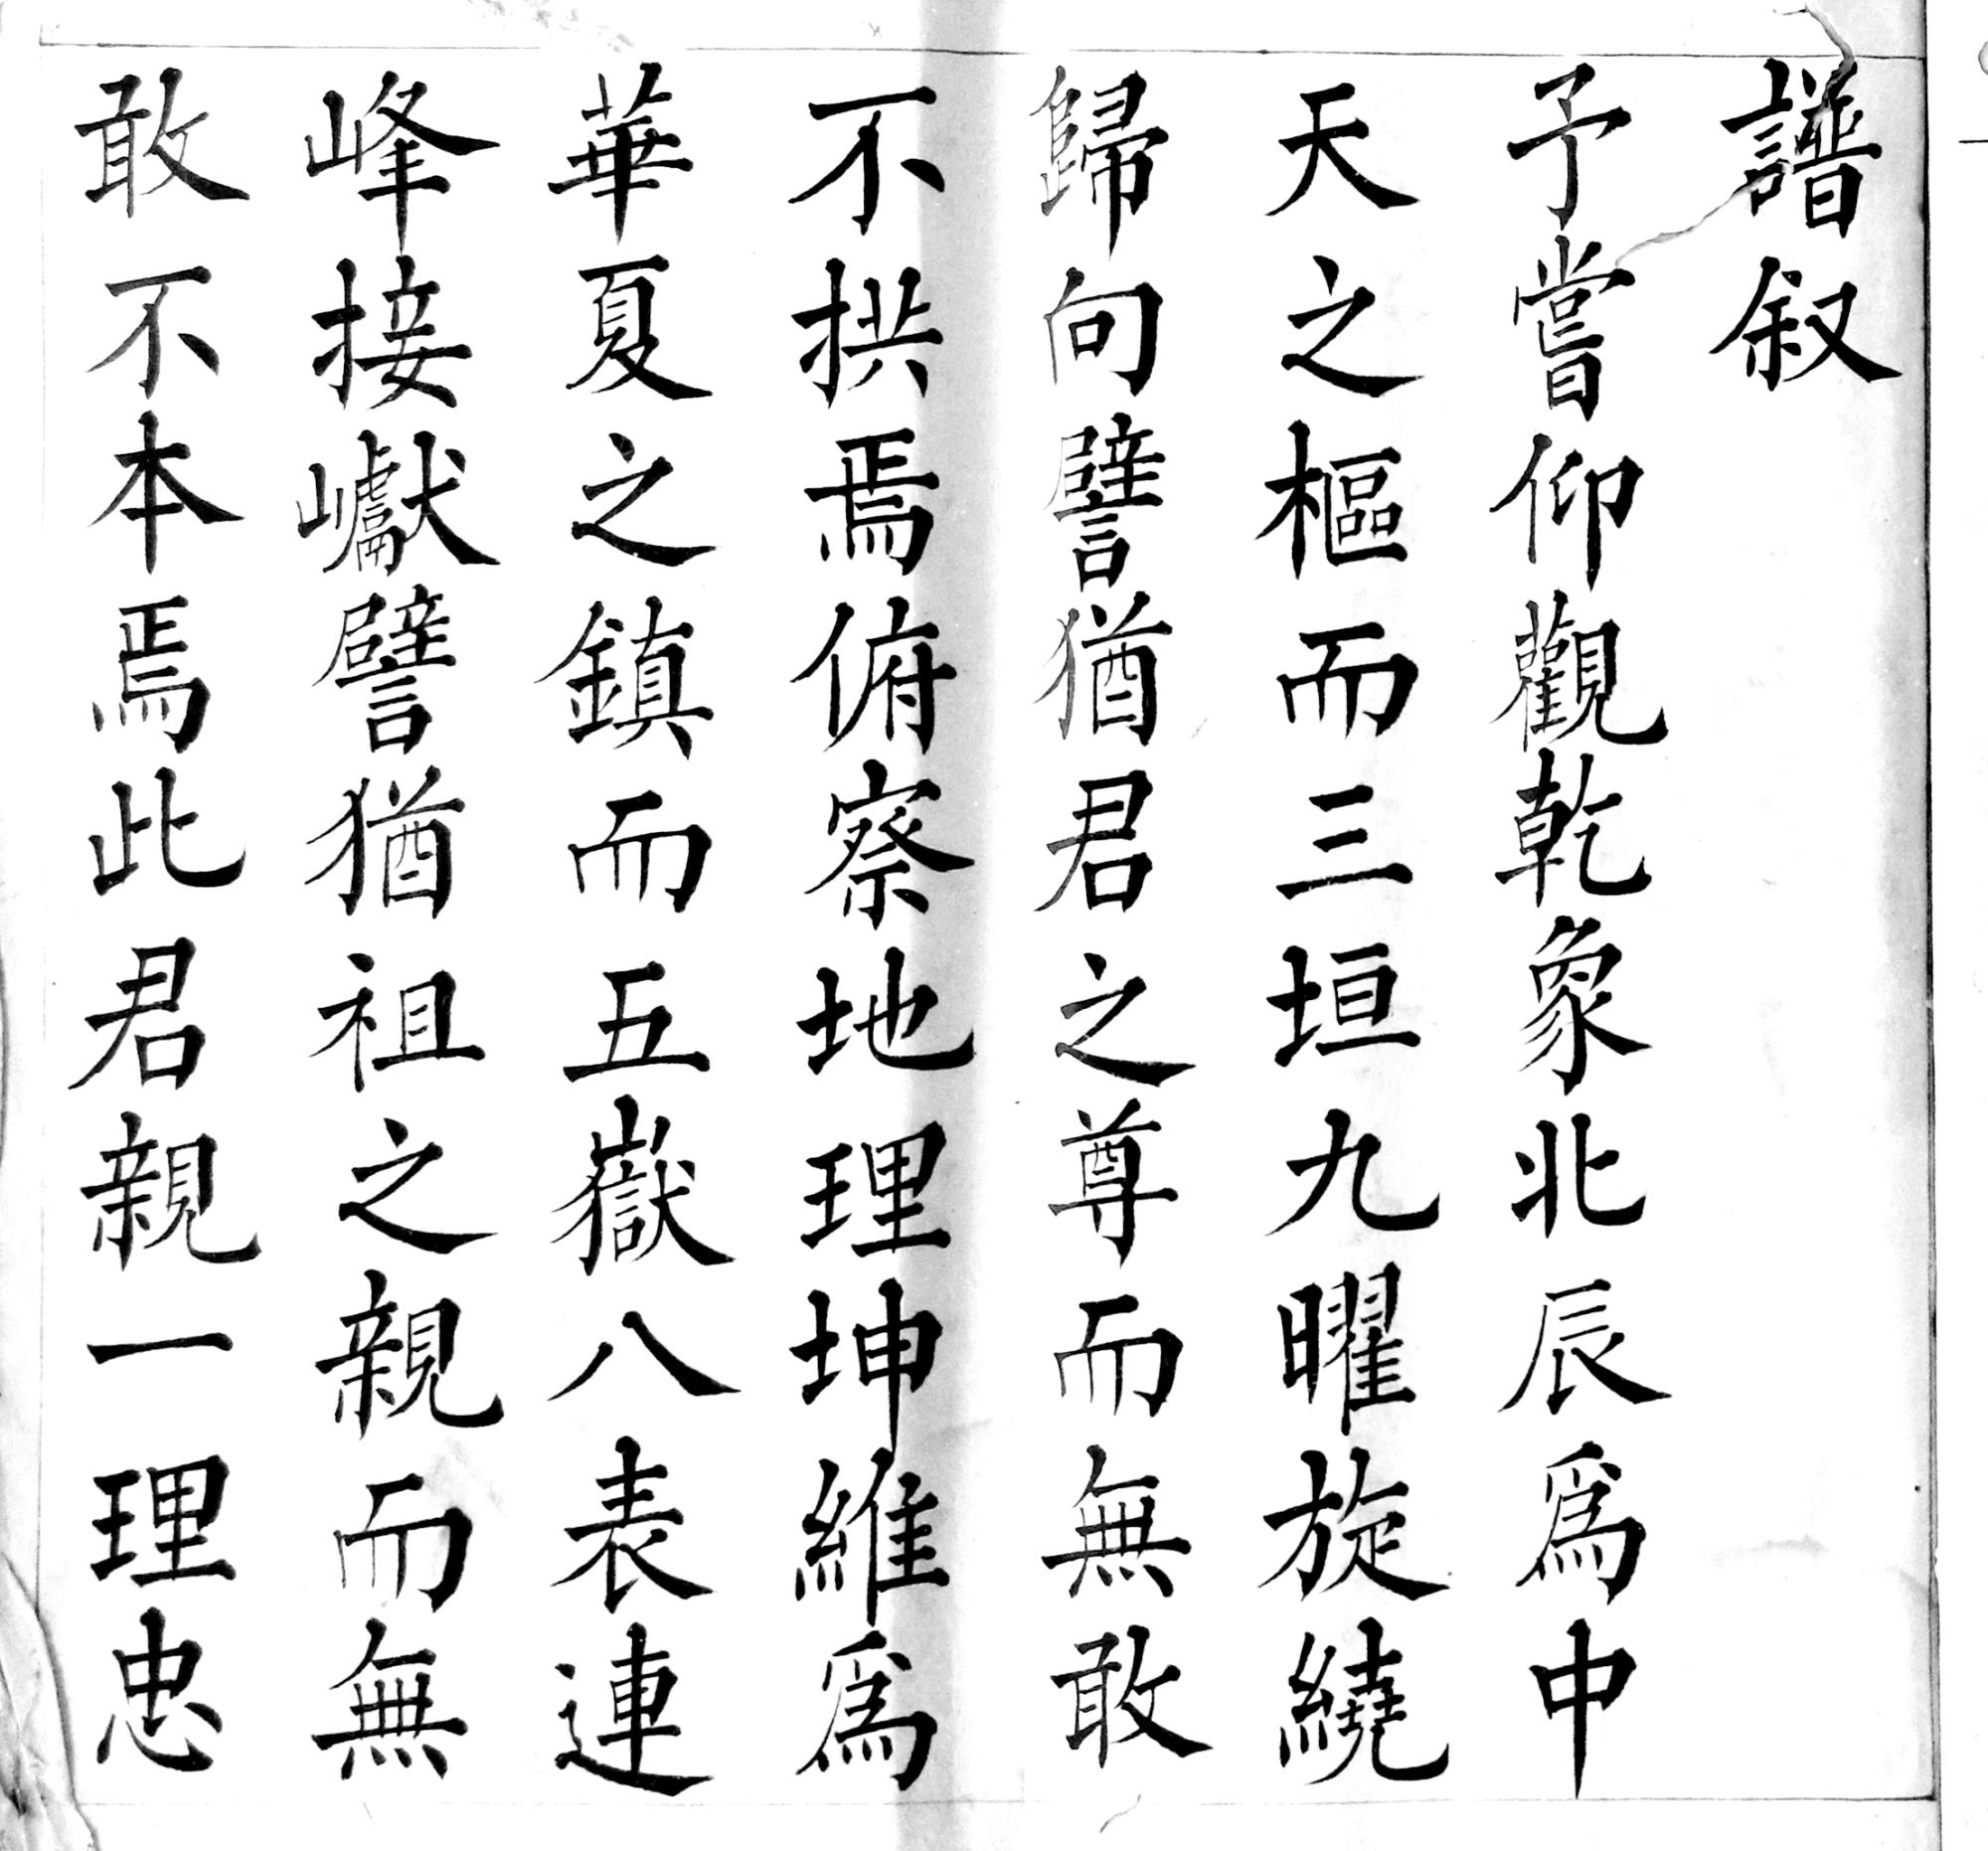 譜叙
予嘗仰觀乾象北辰爲中
天之樞而三垣九曜旋繞
歸向譬猶君之尊而無敢
不拱焉俯察地理坤維爲
華夏之鎮而五嶽八表連
峰接巘譬猶祖之親而無
敢不本焉此君親一理忠